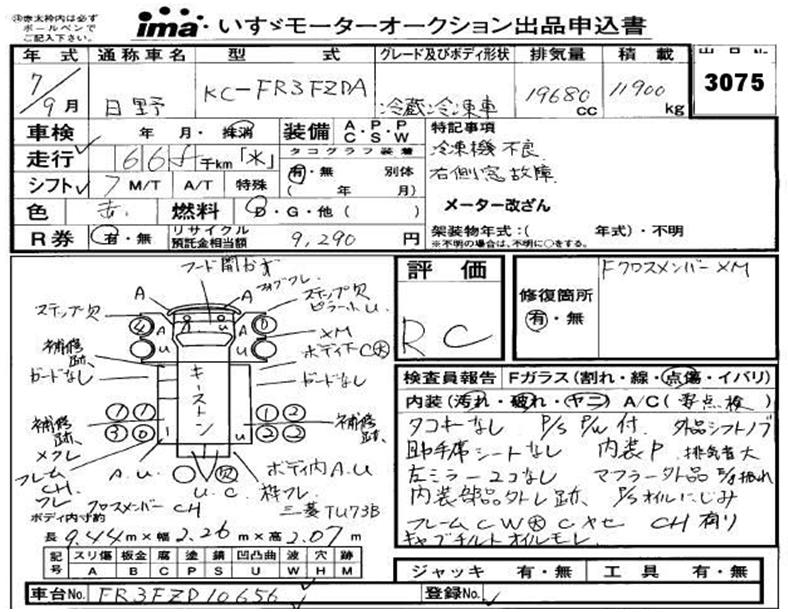 ㊟赤太枠内は必ず
ボールペンで
ご記入下さい。
ima いすゞモーターオークション出品申込書
年式 通称車名 型式 グレード及びボディ形状 排気量 積載 出品No.
7/9月 日野 KC-FR3FZDA 冷蔵冷凍車 19680cc 11900kg 3075
車検 年 月・抹消 装備 A・P・P C・S・W 特記事項
走行 千km「水」 タコグラフ装着 冷凍機不良
有・無 別体 右側窓故障
シフト 7 M/T A/T 特殊 ( 年 月)
色 赤 燃料 D・G・他( ) メーター改ざん
R券 有・無 リサイクル預託金相当額 9,290円 架装物年式:( 年式)・不明
※不明の場合は、不明に○をする。
評価 RC
修復箇所 有・無 FクロスメンバーXM
フード開かず
A A
ステップ欠 ステップ欠
A A XM
U U
補修跡 ボディ下C大
ガードなし キーストン ガードなし
補修跡、 補修跡、
メクレ
フレーム
CH
A.U ボディ内A.U
U.C 枠フレ
クロスメンバーCH 三菱TU73B
ボディ内寸約
長9.44m×幅2.26m×高2.07m
記号 スリ傷 板金 腐 塗 錆 凹凸曲 波 穴 跡
A B C P S U W H M
検査員報告 Fガラス(割れ・線・点傷・イバリ)
内装(汚れ・破れ・ヤニ) A/C(要点検)
タコキーなし P/S P/W付 外品シフトノブ
助手席シートなし 内装P 排気音大
左ミラー1コなし マフラー外品
内装部品外トレ跡、 P/Sオイルにじみ
フレームCW大 Cヤセ CH有り
キャブチルトオイルモレ
ジャッキ 有・無 工具 有・無
車台No. FR3FZD10656 登録No.